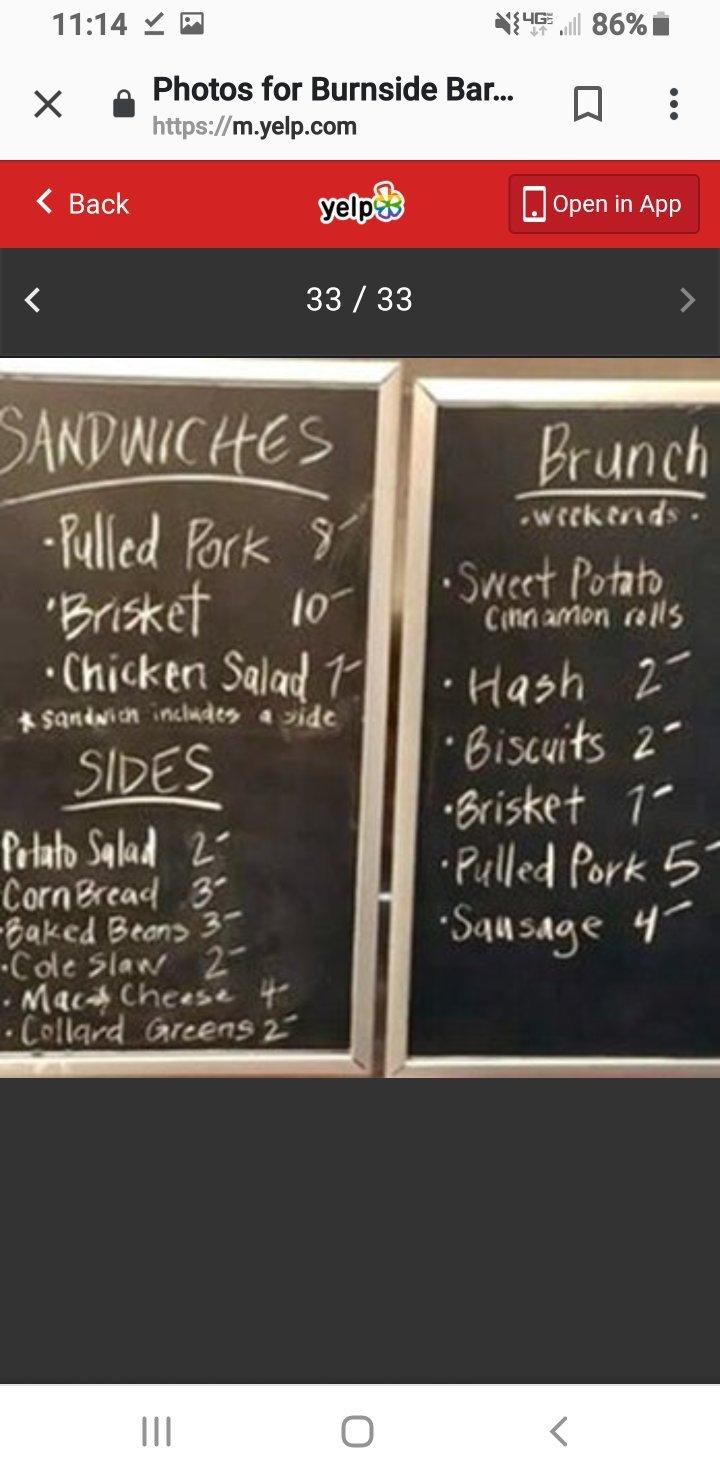 11:14
4GE 86%
Photos for Burnside Bar...
https://m.yelp.com
Back
yelp
Open in App
33 / 33
SANDWICHES
·Pulled Pork 8-
·Brisket 10-
·Chicken Salad 7-
* sandwich includes a side
SIDES
Potato Salad 2-
Corn Bread 3-
·Baked Beans 3-
·Cole Slaw 2-
·Mac + Cheese 4-
·Collard Greens 2-
Brunch
·weekends·
·Sweet Potato
Cinnamon rolls
·Hash 2-
·Biscuits 2-
·Brisket 7-
·Pulled Pork 5-
·Sausage 4-